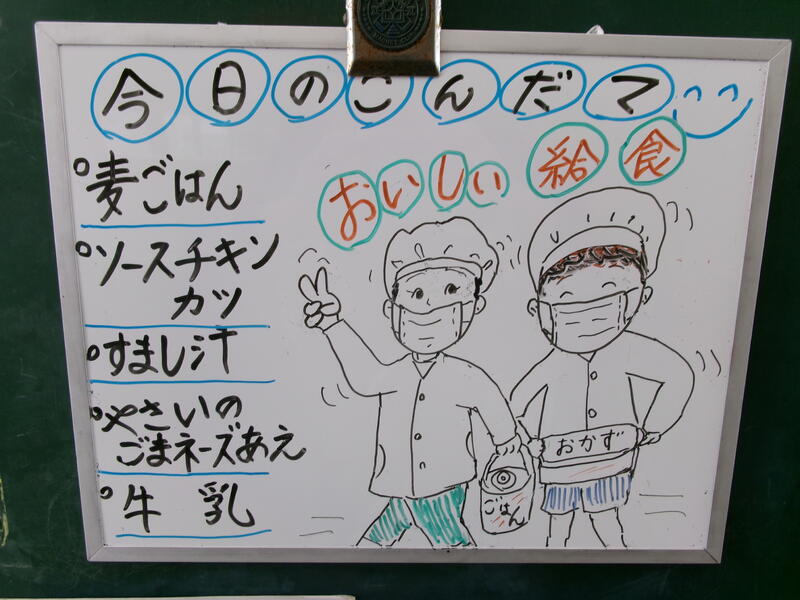 今日のこんだて
おいしい給食
麦ごはん
ソースチキン
カツ
すまし汁
やさいの
ごまネーズあえ
牛乳
ごはん
おかず